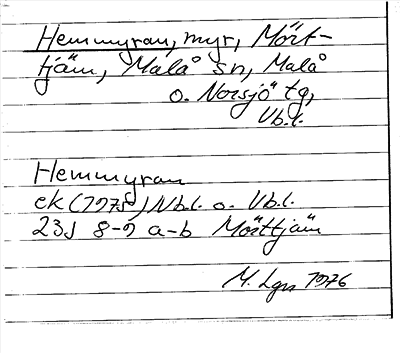 Hemmyran, myr, Mört-
tjärn, Malå sn, Malå
o. Norsjö tg,
Vb.l.
Hemmyran
ek (1975) Nb.l. o. Vb.l.
23J 8-9 a-b Mörttjärn
M. Lgn 1976